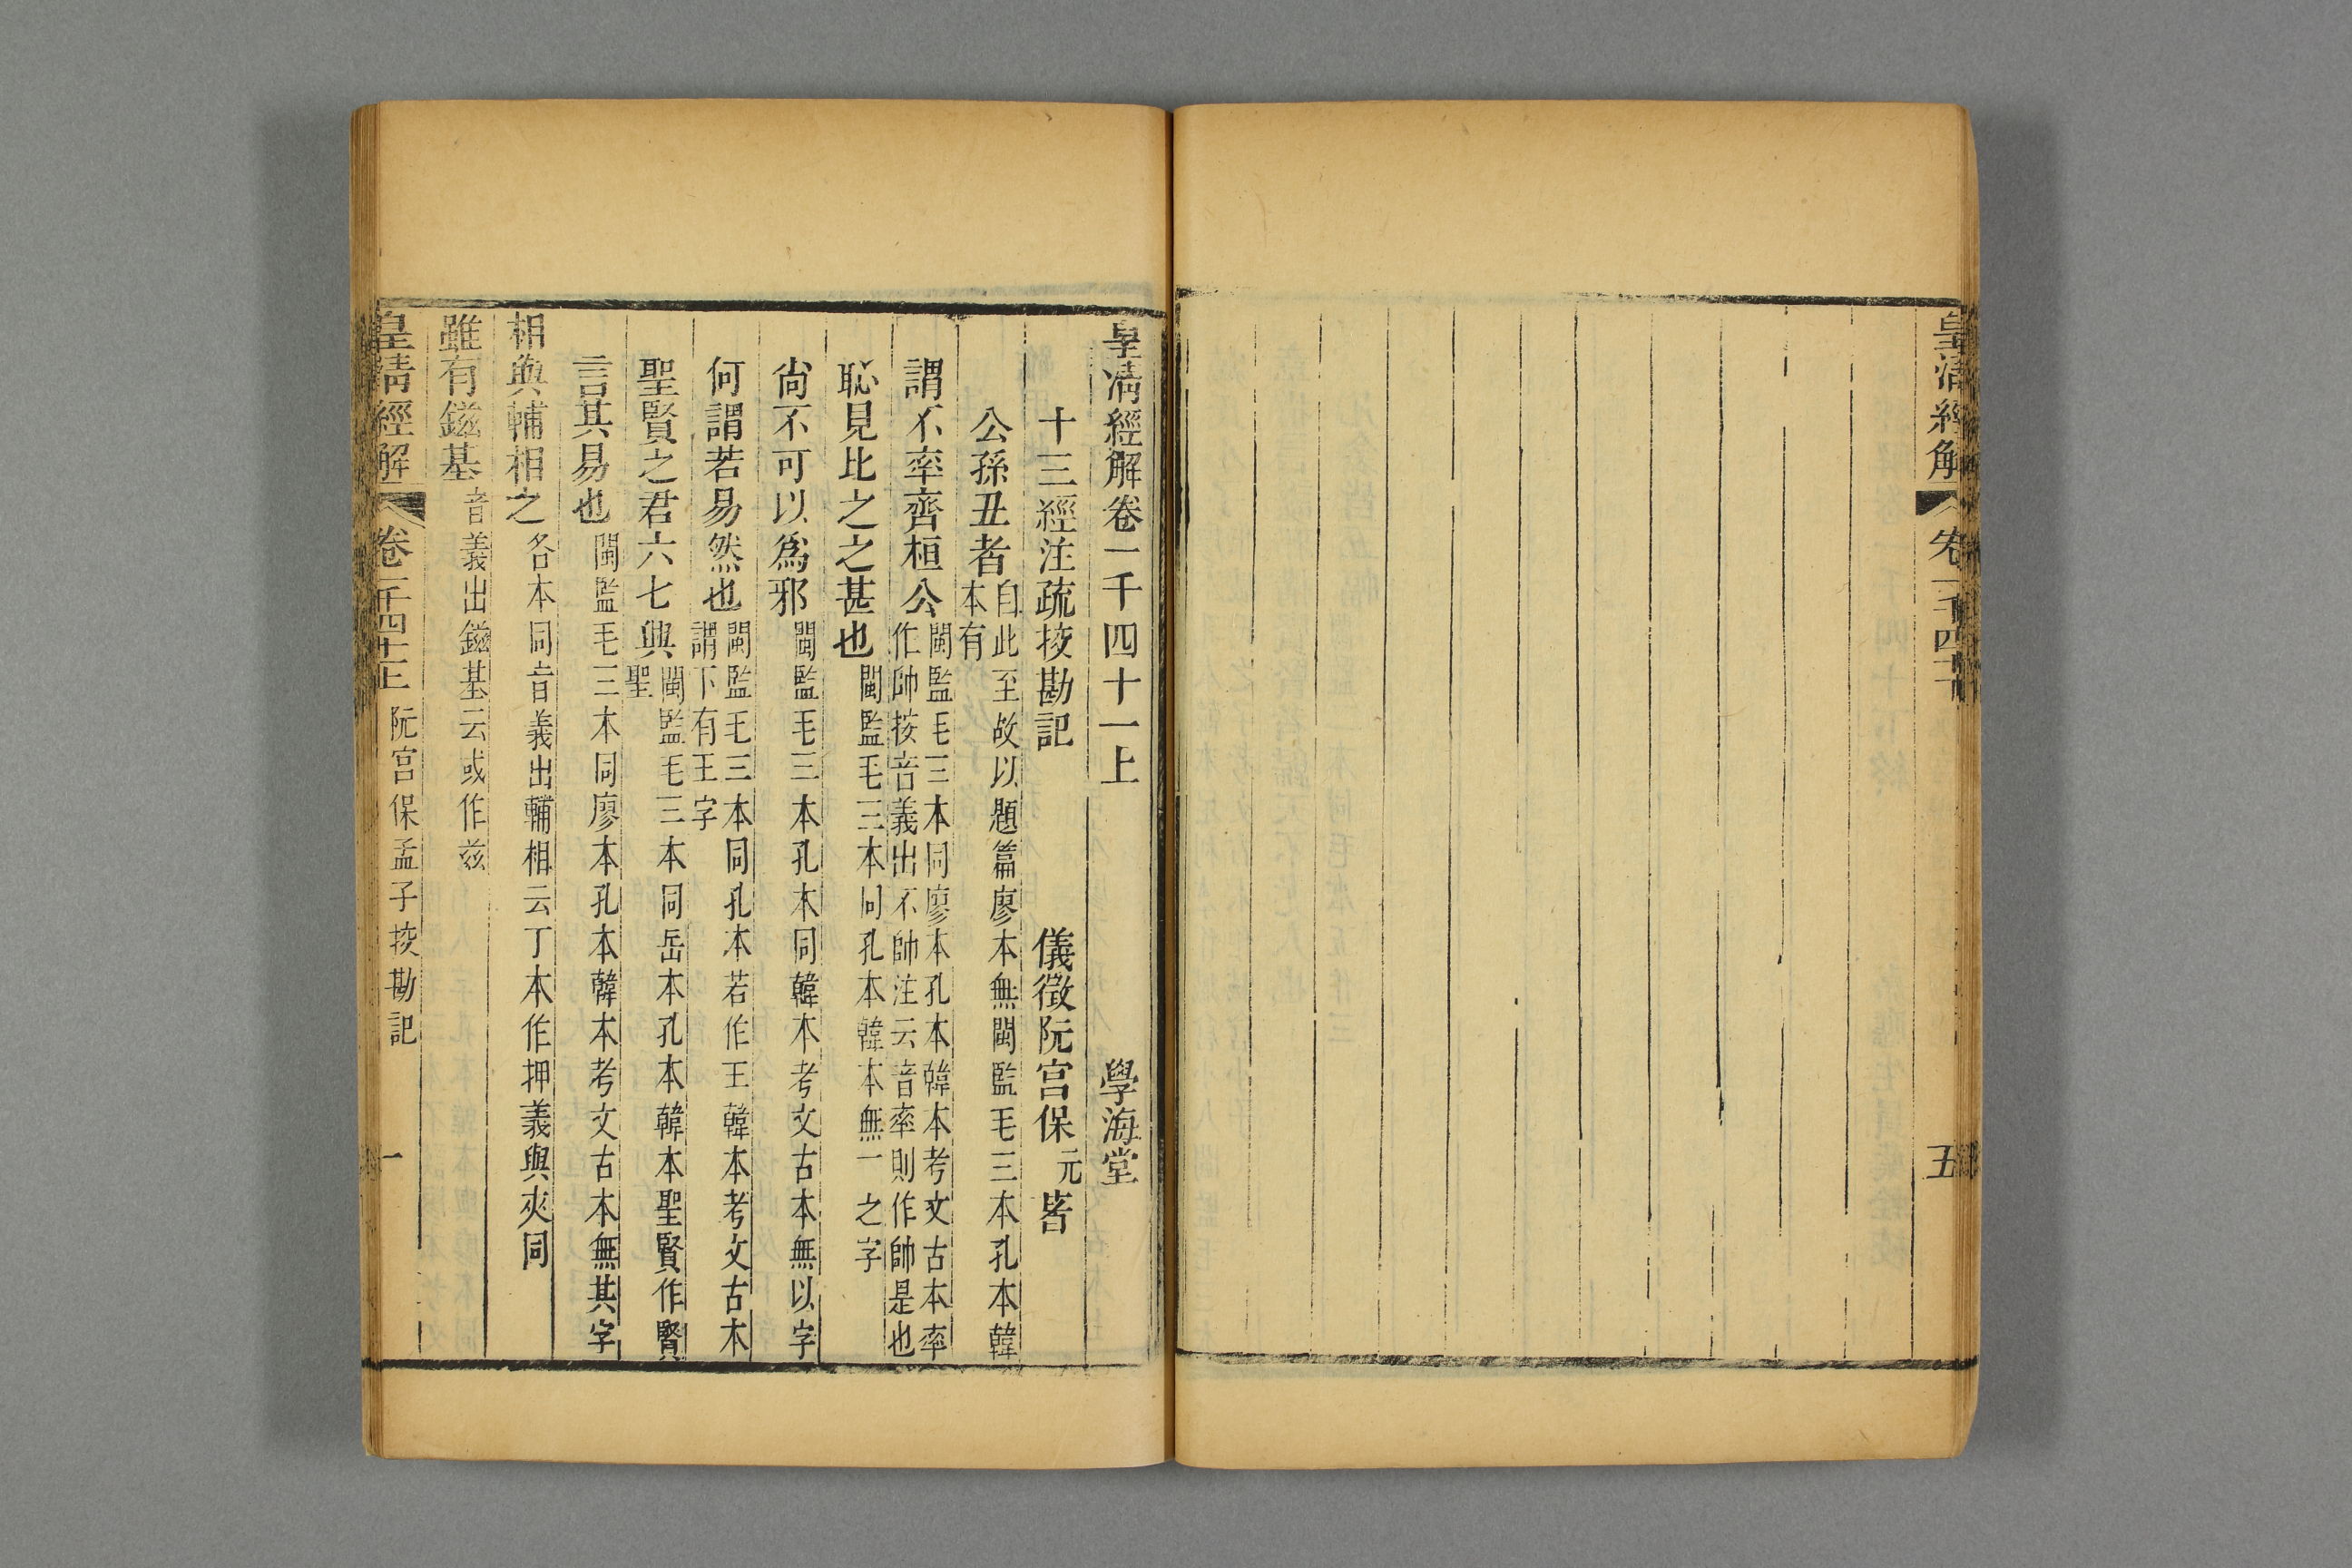 皇清經解
卷一千四十
五
皇清經解卷一千四十一上
學海堂
十三經注疏挍勘記
儀徵阮宮保元著
公孫丑者自此至故以題篇廖本無閩監毛三本孔本韓
本有
謂不率齊桓公閩監毛三本同廖本孔本韓本考文古本率
作帥按音義出不帥注云音率則作帥是也
恥見比之之甚也閩監毛三本同孔本韓本無一之字
尙不可以爲邪閩監毛三本孔本同韓本考文古本無以字
何謂若易然也閩監毛三本同孔本若作王韓本考文古本
謂下有王字
聖賢之君六七興閩監毛三本同岳本孔本韓本聖賢作賢
聖
言其易也閩監毛三本同廖本孔本韓本考文古本無其字
相與輔相之各本同音義出輔相云丁本作押義與夾同
雖有鎡基音義出鎡基云或作兹
皇清經解
卷一千四十一上
阮宮保孟子挍勘記
一